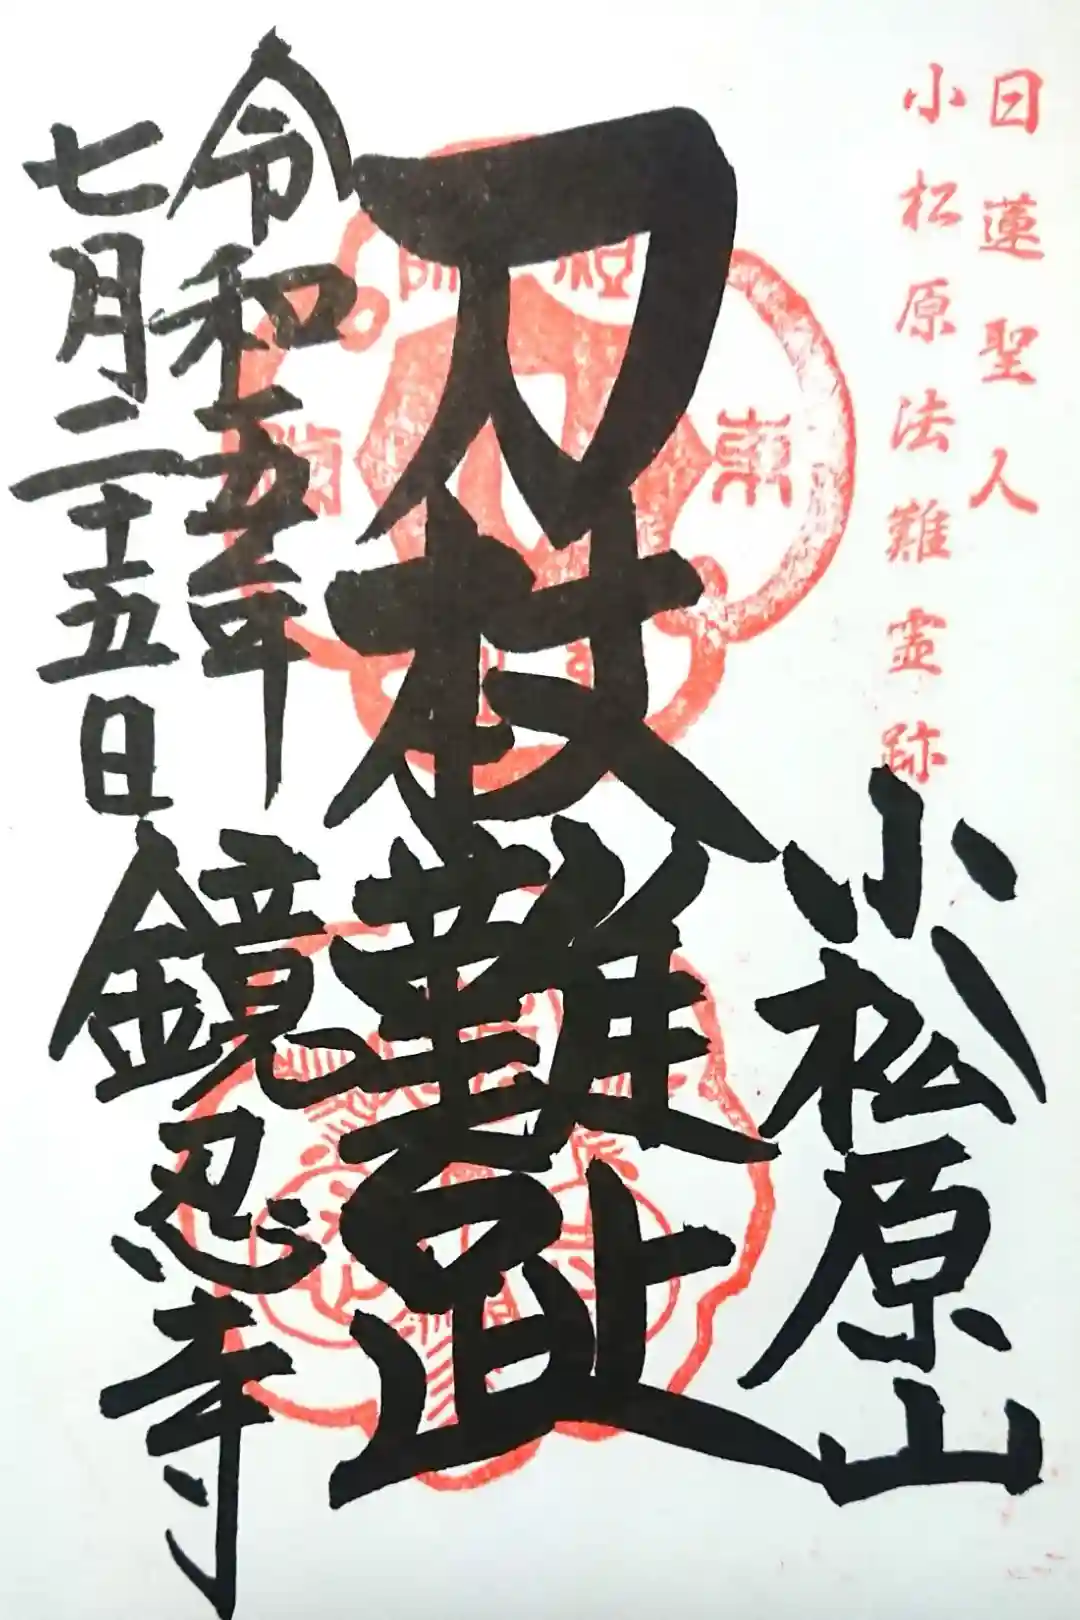 日蓮聖人
小松原法難霊跡
小松原山
刀杖難趾
令和五年
七月二十五日
鏡忍寺